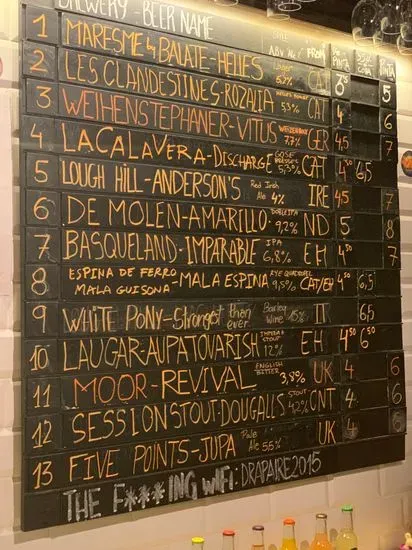 BREWERY - BEER NAME ABV % FROM 1/2 PINTA PINTA
1 MARESME by BALATE-HELLES Lager 5,2% CAT 5
2 LES CLANDESTINES-ROZALIA 5% CAT
3 WEIHENSTEPHANER-VITUS WEIZENBOCK 7.7% GER 4,5 6
4 LA CALAVERA-DISCHARGE GOSE 5,3% CAT 4,50 6,5
5 LOUGH HILL-ANDERSON'S Red Irish Ale 4% IRE 4,5 7
6 DE MOLEN-AMARILLO. DOBLE IPA 9,2% ND 5 8
7 BASQUELAND-IMPARABLE IPA 6,8% EH 4,50 7
8 ESPINA DE FERRO MALA GUISONA-MALA ESPINA RYE QUADRUPEL 9,5% CAT/EH 4,50 6,5
9 WHITE PONY-Strongest then ever Barley Wine 15% IT 6,5
10 LAUGAR-AUPATOVARISH IMPERIAL STOUT 12% EH 4,50 6,50
11 MOOR-REVIVAL ENGLISH BITTER 3,8% UK 4 6
12 SESSIONSTOUT-DOUGALLS STOUT 4,2% CNT 4 6
13 FIVE POINTS-JUPA Pale Ale 5,5% UK 4 6
THE F***ING WIFI: DRAPAIRE2015